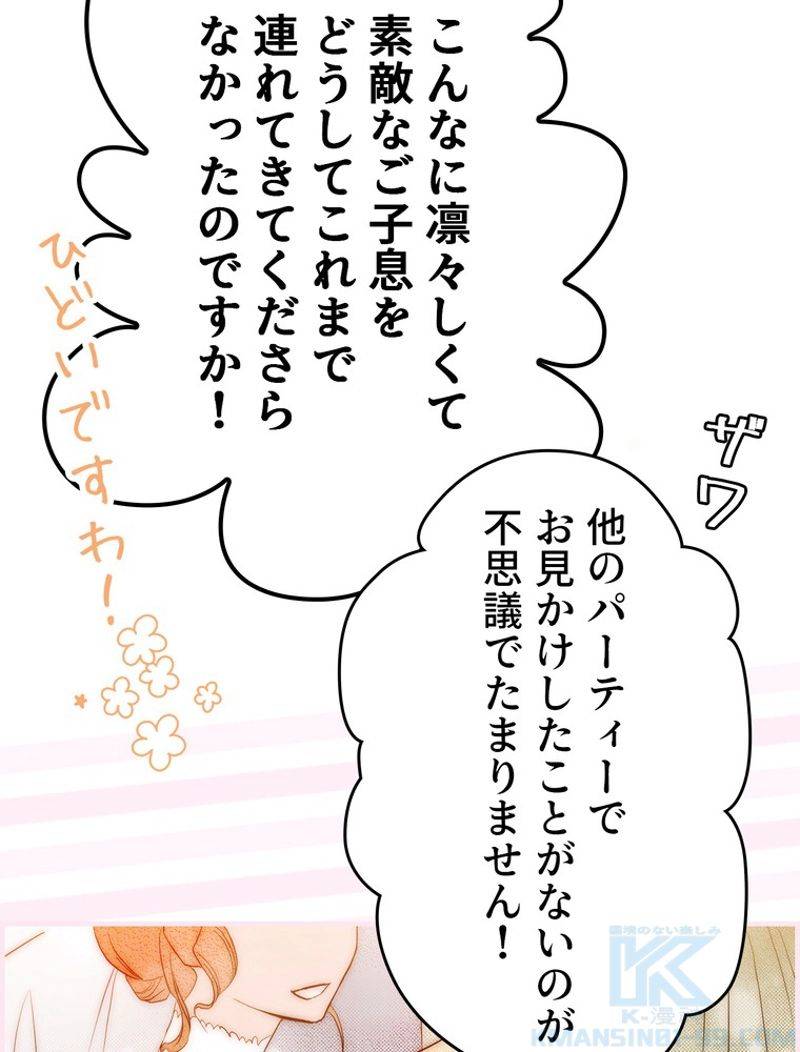 こんなに凛々しくて
素敵なご子息を
どうしてこれまで
連れてきてくださら
なかったのですか！
ひどいですわ！
ザワ
他のパーティーで
お見かけしたことがないのが
不思議でたまりません！
K
K-漫画
KMANSIN01-99.COM